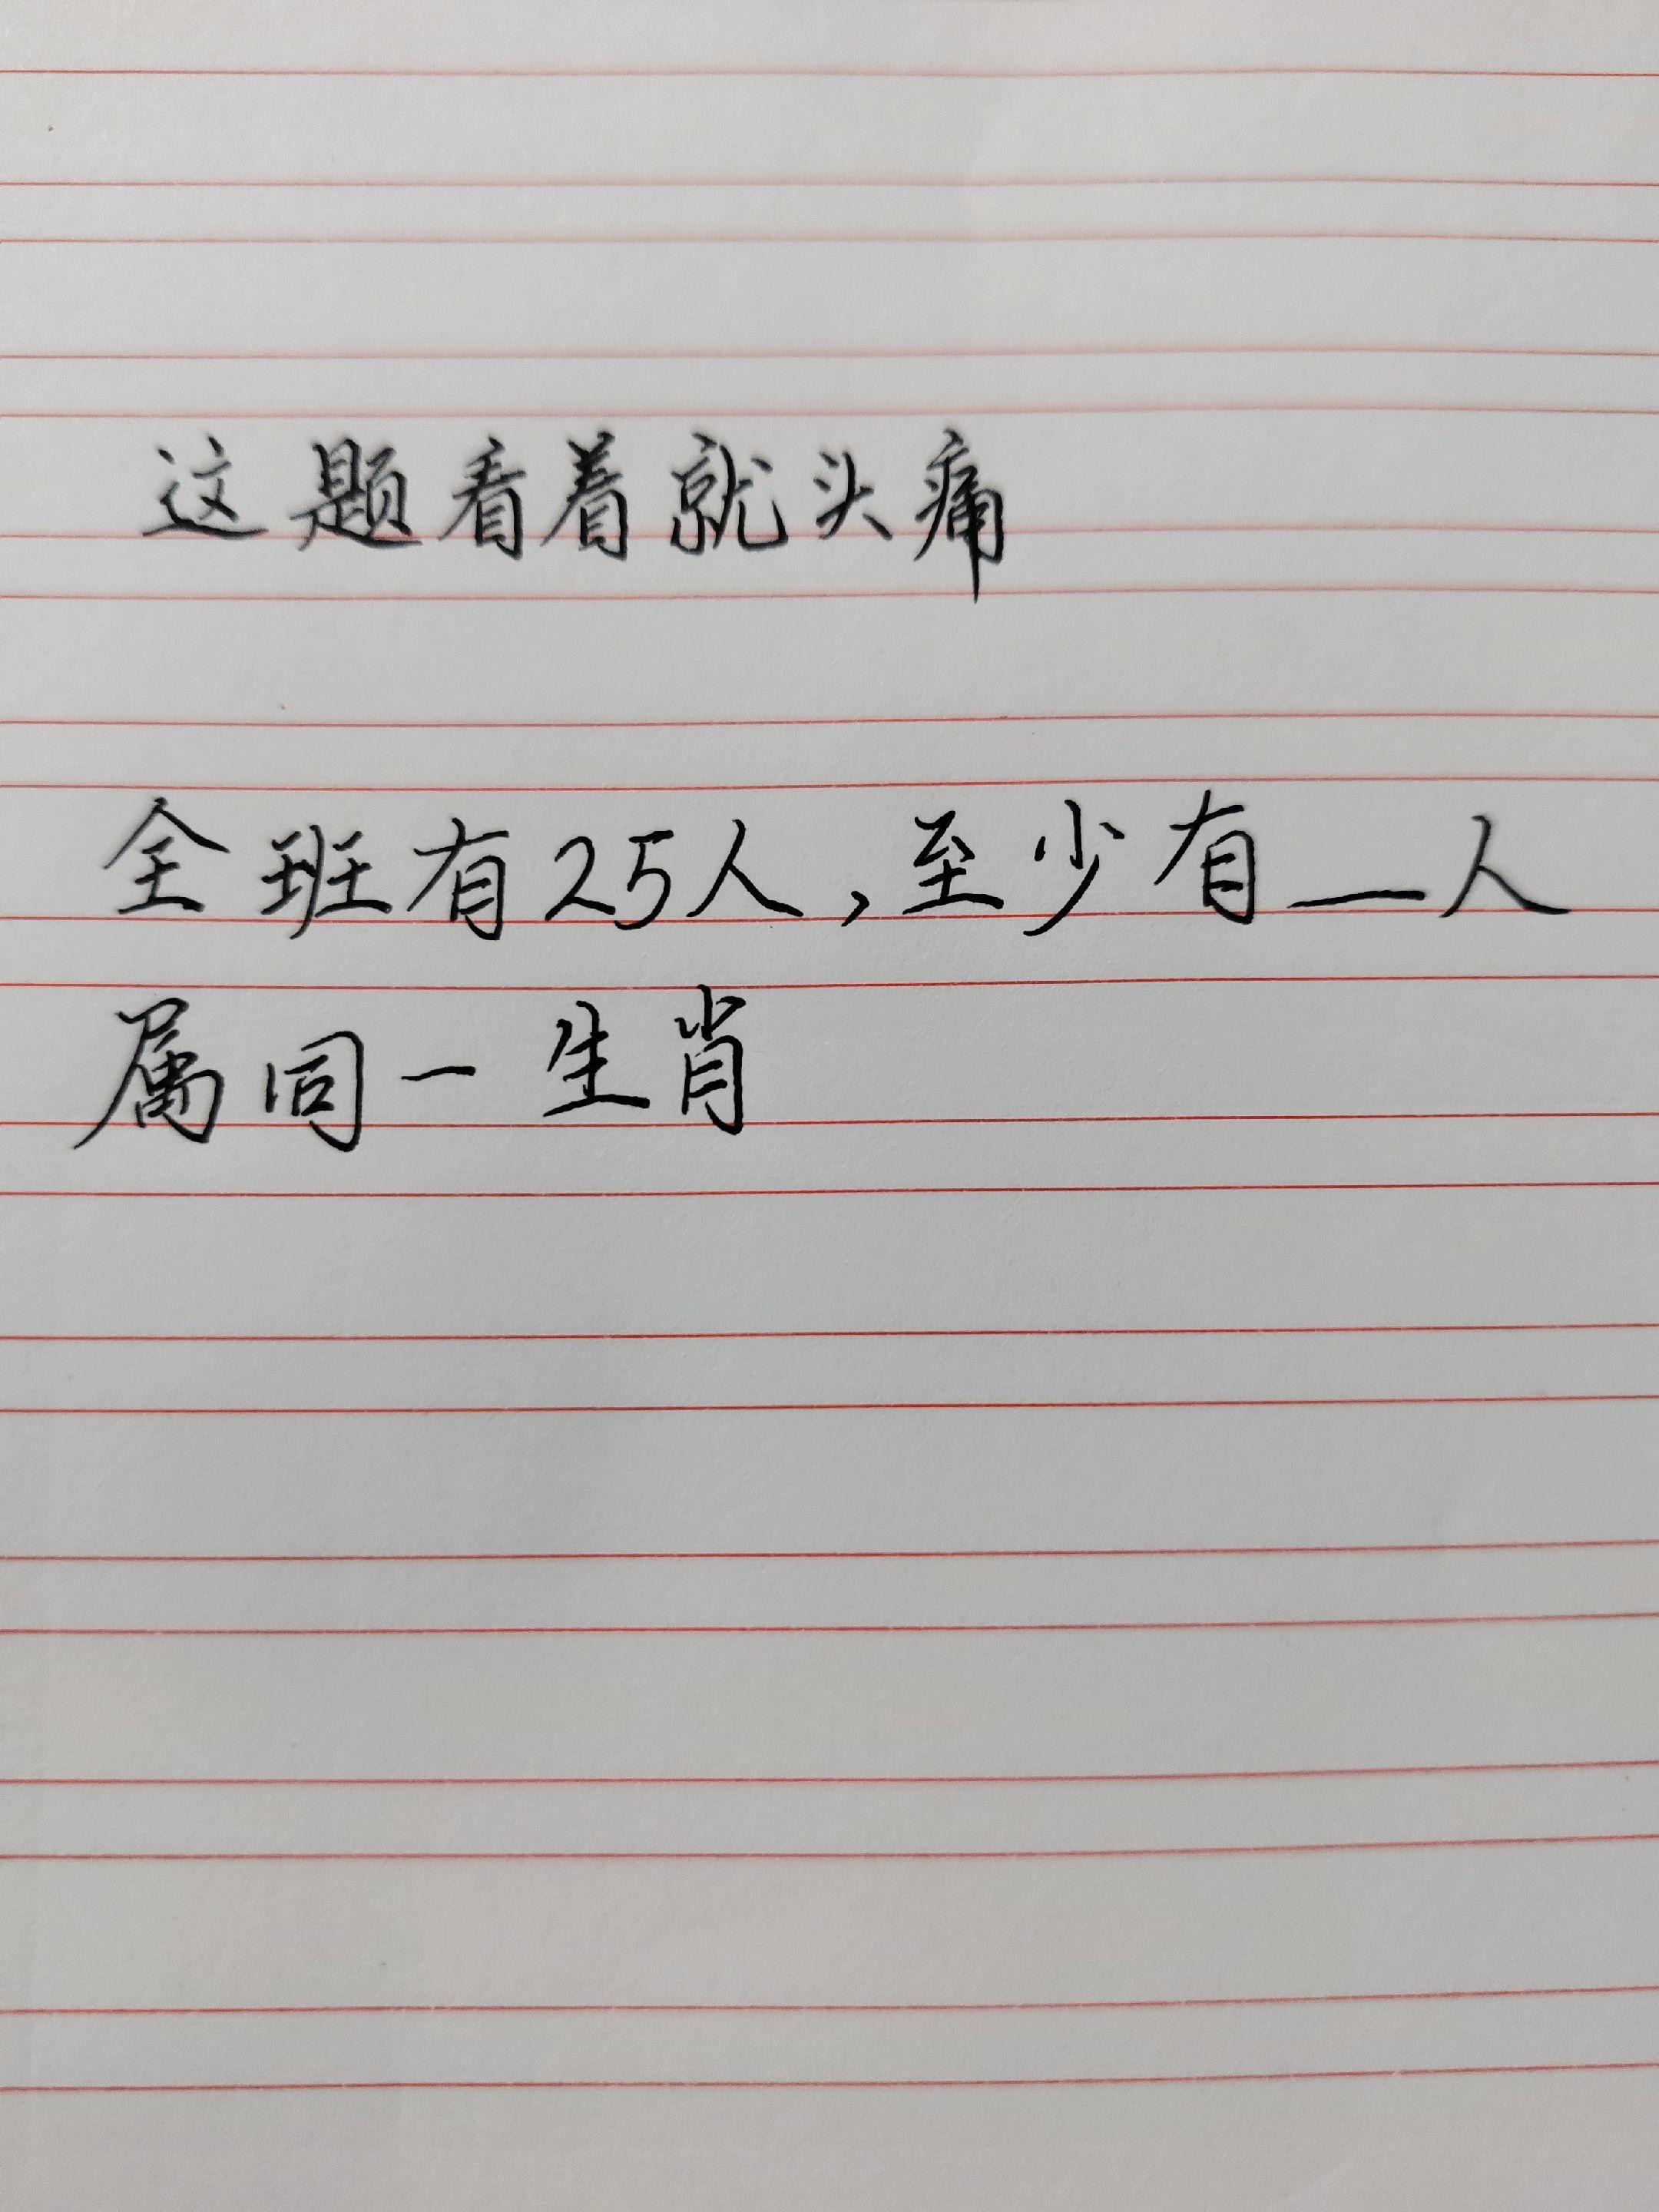 这题看着就头痛
全班有25人,至少有__人
属同一生肖